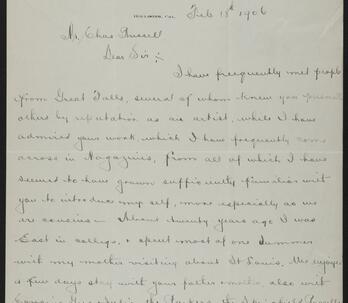 Feb 13th 1906
Mr. Chas Russell
Dear Sir;
I have frequently met people
from Great Falls, several of whom knew you
others by reputation as an artist, while I have
admired your work, which I have frequently come
across in Magazines, from all of which I have
seemed to have grown sufficiently familiar with
you to introduce my self, more especially as we
are cousins - About twenty years ago I was
East in college, & spent most of one summer
with my mother visiting about St Louis. We enjoyed
a few days stay with your father & mother, also with